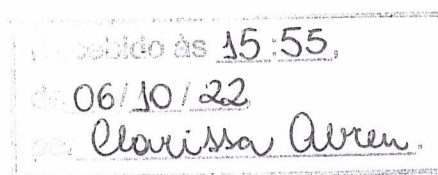 Recebido às 15:55,
de 06/10/22
por Clarissa Abreu.